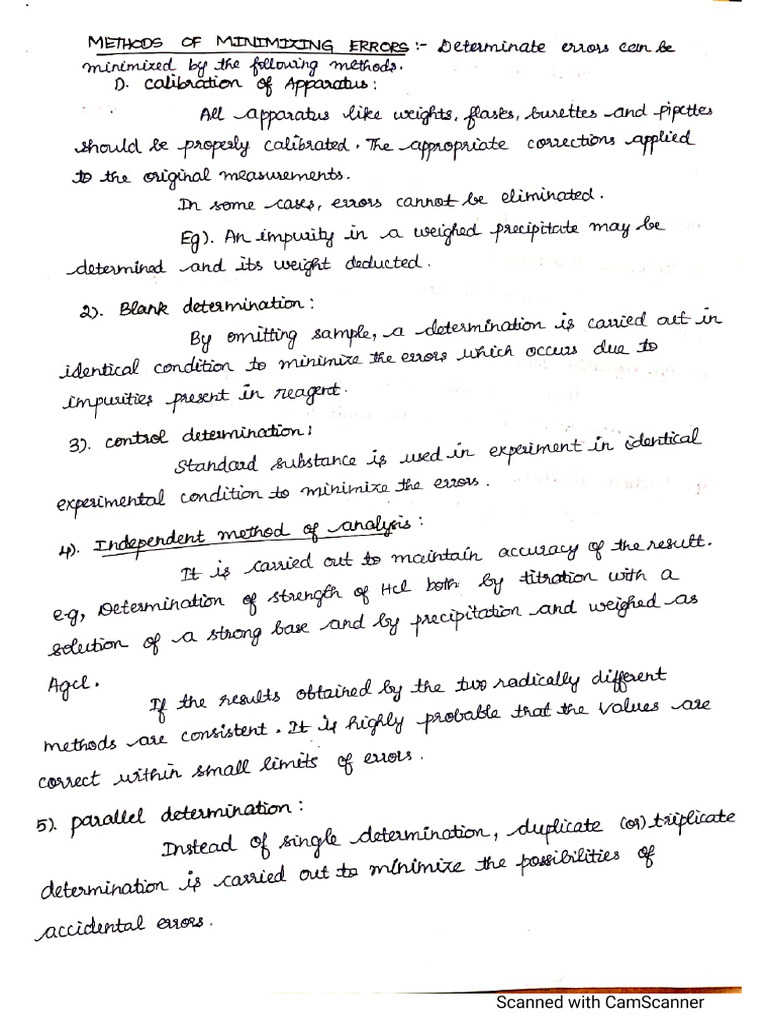 METHODS OF MINIMIZING ERRORS :- Determinate errors can be
minimized by the following methods.
1). Calibration of Apparatus :
All apparatus like weights, flases, burettes and pipettes
should be properly calibrated. The appropriate corrections applied
to the original measurements.
In some cases, errors cannot be eliminated.
Eg). An impurity in a weighed precipitate may be
determined and its weight deducted.
2). Blank determination :
By omitting sample, a determination is carried out in
identical condition to minimize the errors which occurs due to
impurities present in reagent.
3). control determination :
Standard substance is used in experiment in identical
experimental condition to minimize the errors.
4). Independent method of analysis :
It is carried out to maintain accuracy of the result.
e.g, Determination of strength of Hcl both by titration with a
solution of a strong base and by precipitation and weighed as
Agcl.
If the results obtained by the two radically different
methods are consistent. It is highly probable that the values are
correct within small limits of errors.
5). parallel determination :
Instead of single determination, duplicate (or) triplicate
determination is carried out to minimize the possibilities of
accidental errors.
Scanned with CamScanner